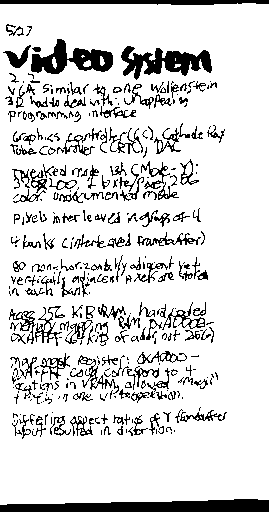 5/27
Video System
2.2
VGA similar to one Wolfenstein
3D had to deal with: unappealing
programming interface
Graphics controller (GC), Cathode Ray
Tube Controller (CRTC), DAC
Tweaked mode 13h (Mode-Y):
320x200, 1 byte/pixel, 256
color undocumented mode
Pixels interleaved in groups of 4
4 banks (interleaved framebuffer)
80 non-horizontally adjacent yet
vertically adjacent pixels are stored
in each bank.
256 KiB VRAM, hard coded
memory mapping RAM 0xA0000-
0xAFFFF (64 KiB of addr, not 256)
Map mask register: 0xA0000-
0xAFFFF could correspond to 4
locations in VRAM, allowed "magic"
4 pixels in one write operation.
Differing aspect ratios of Y framebuffer
layout resulted in distortion.